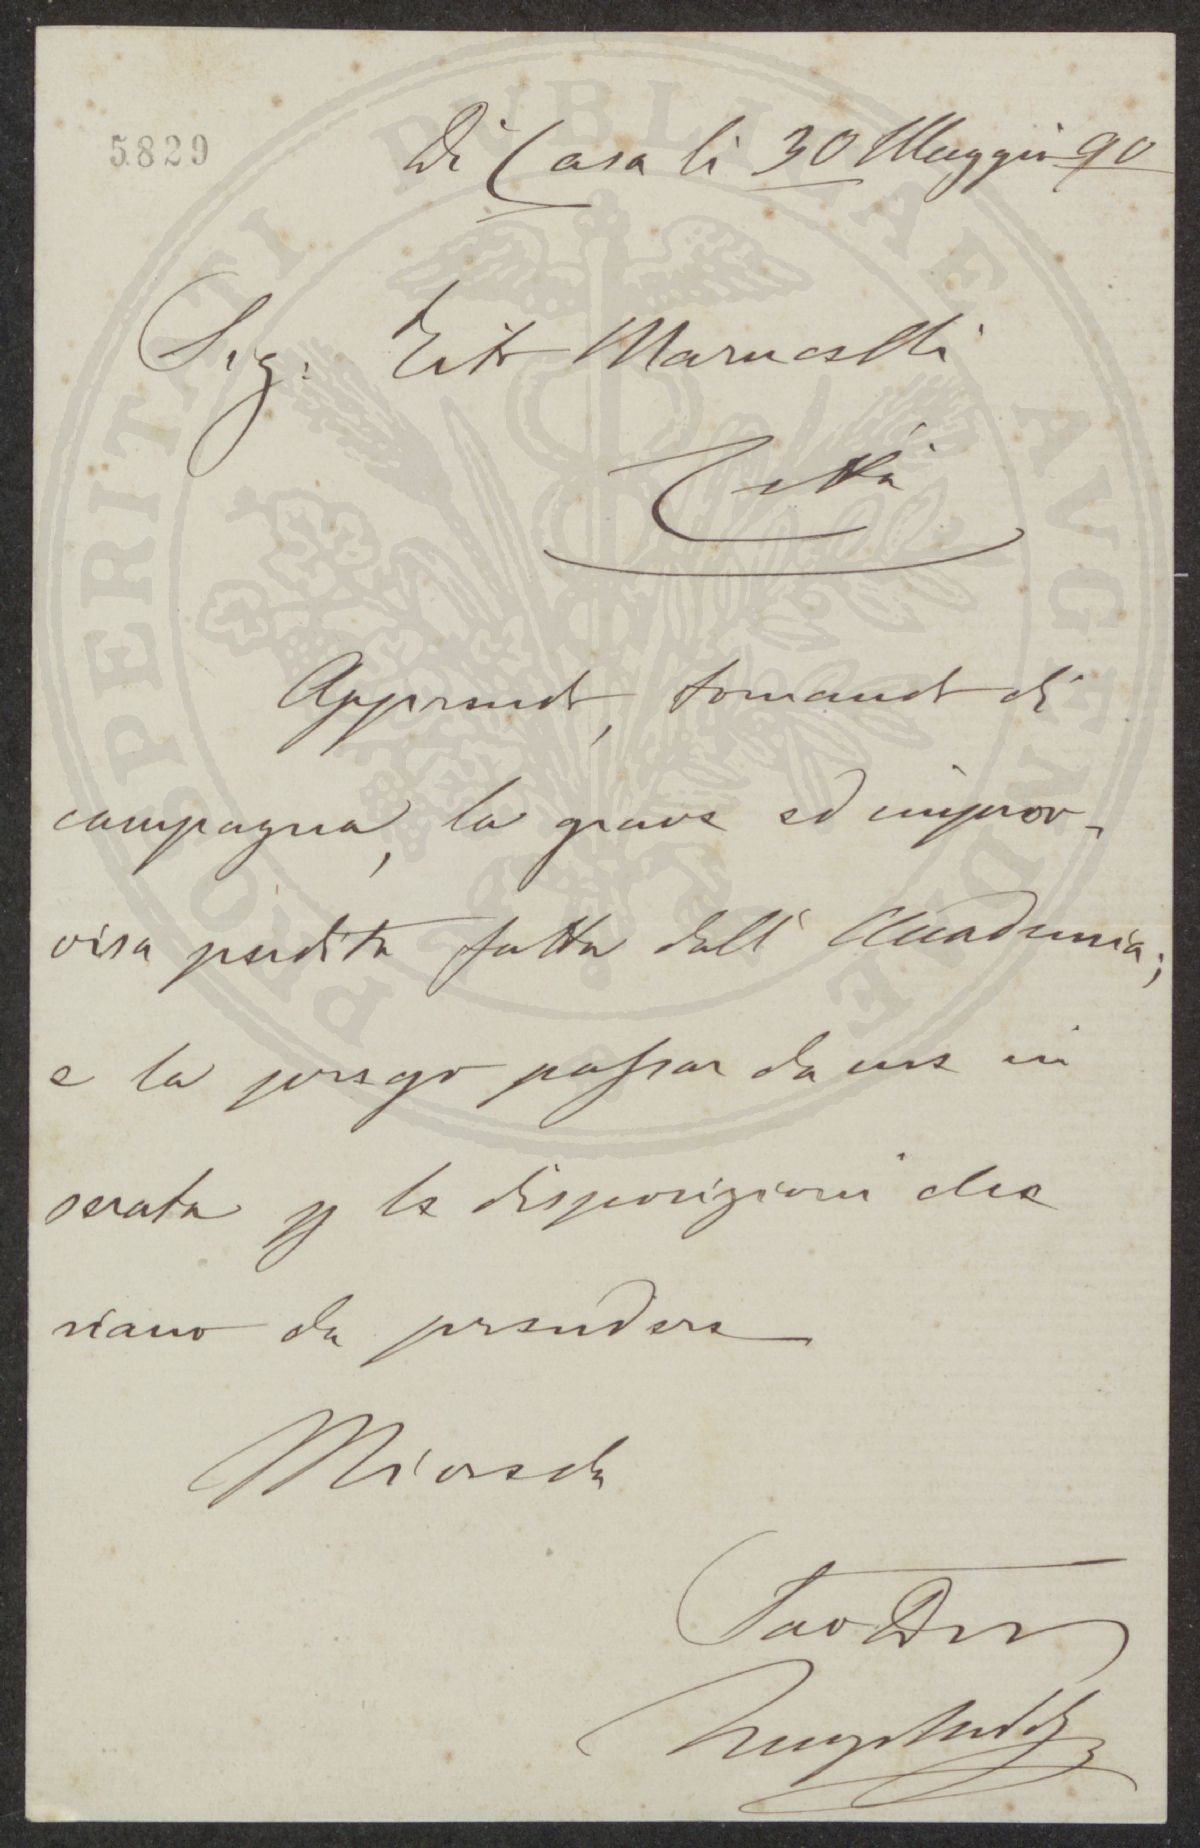 5829
Di Casa li 30 Maggio 90
Sig: Tito Marucelli
Città
Apprendo, tornando di
campagna, la grave ed improv-
visa perdita fatta dall' Accademia;
e la prego passar da me in
serata p le disposizioni che
siano da prendere
Mi creda
Suo Dev
PROSPERITATI PVBLICAE AVGENDAE